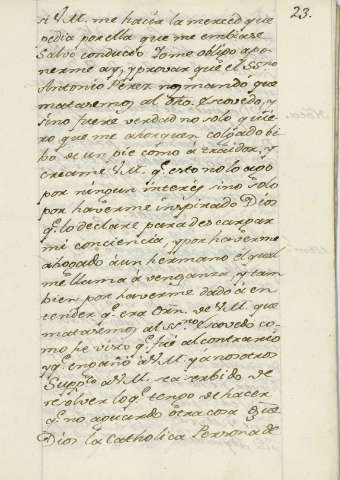 23.
si V.M. me hacia la merced que
pedia por ella que me embiase
Salvo conducto. Yo me obligo a po-
nerme ay, y provar que el SSrio
Antonio Perez nos mandó que
matasemos al dho. Escovedo, y
sino fuere verdad no solo quie-
ro que me ahorquen colgado bi-
bo de un pie como á traidor, y
creame V.M. qe. esto no lo ago
por ningun interes sino solo
por haverme inspirado Dios
qe. lo declare para descargar
mi conciencia, y por haverme
ahogado á un hermano el qual
me llama á venganza y tam
bien por haverme dado á en
tender qe. era Orn. de V.M. que
matasemos al SSrio. Escovedo co-
mo he visto qe. fué al contrario
y qe. engañó á V.M. y a nosotros
Suppco. a V.M. sea serbido de
resolver lo qe. tengo de hacer
qe. no aguardo otra cosa Gue
Dios la Catholica Persona de